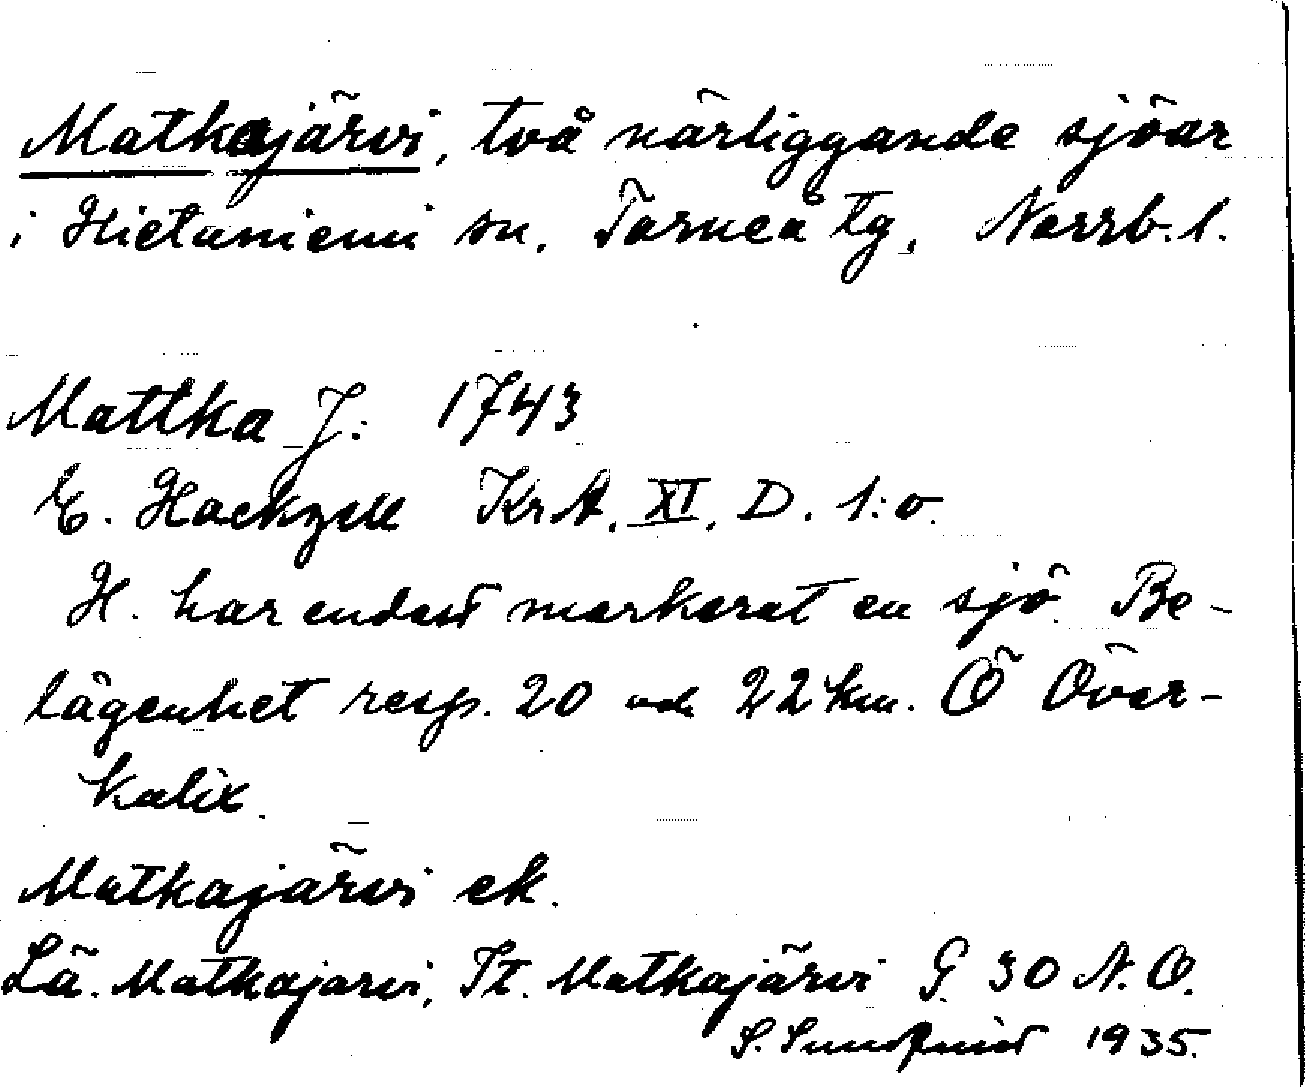 Matkajärvi, två närliggande sjöar
i Hietaniemi sn. Torneå tg, Norrb. l.
Mattka J: 1743
E. Hackzell KrA. XI. D. 1:o.
H. har endast markerat en sjö. Be-
lägenhet resp. 20 och 22 km. Ö Över-
kalix.
Matkajärvi ek.
Lä. Matkajärvi, It. Matkajärvi G. 30 N.O.
S. Sundqvist 1935.